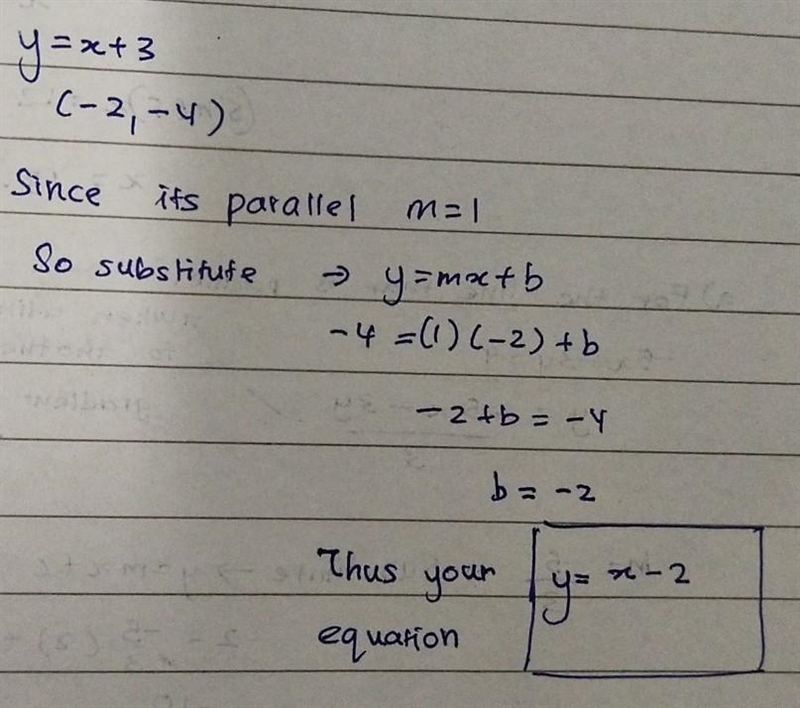 y = x + 3
(-2, -4)
Since its parallel m = 1
So substitute → y = mx + b
-4 = (1) (-2) + b
-2 + b = -4
b = -2
Thus your equation
y = x - 2